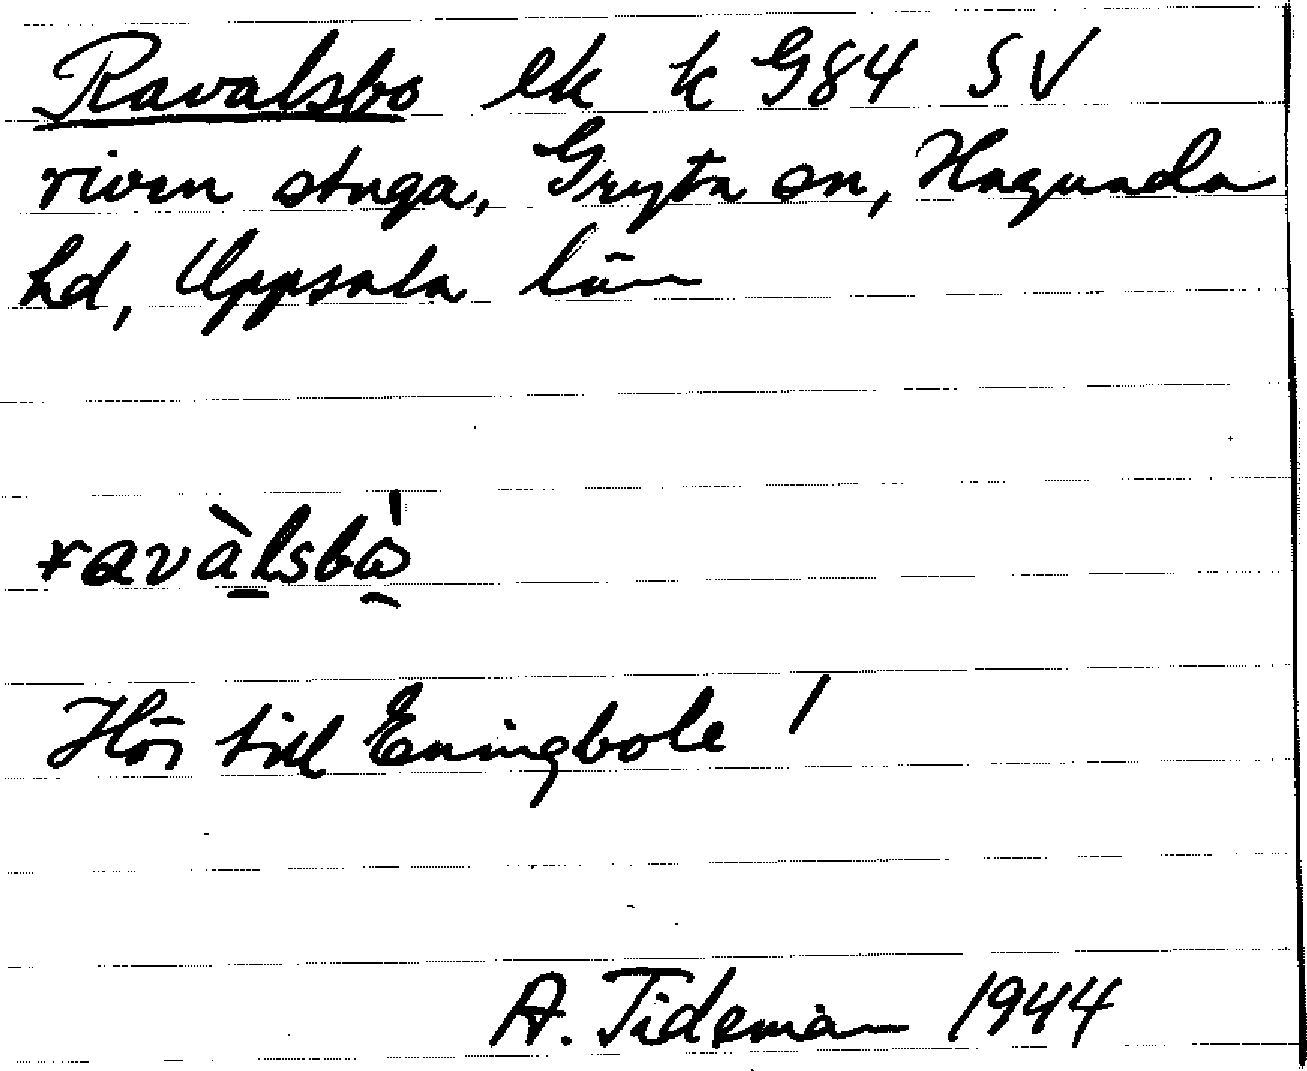 Ravalsbo ek k G84 SV
riven stuga, Gryta sn, Hagunda
hd, Uppsala län
ravàlsbò
Hör till Eningbole!
A. Tideman 1944